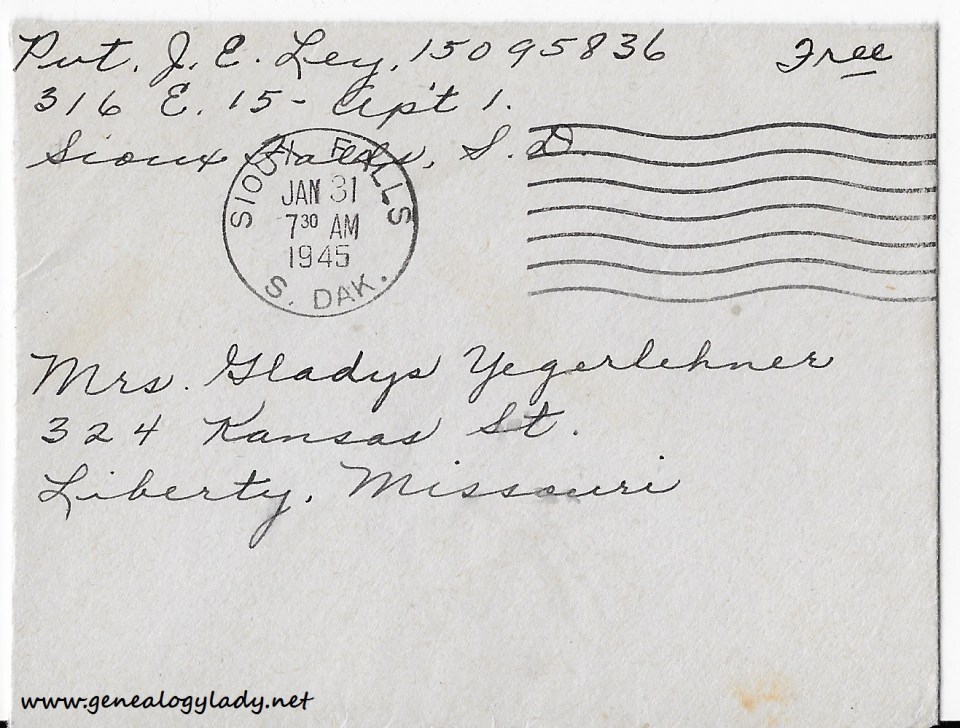 Pvt. J. E. Ley, 15095836 Free
316 E. 15 - Apt 1.
Sioux Falls, S. D.
SIOUX FALLS
JAN 31
7 30 AM
1945
S. DAK.
Mrs. Gladys Yegerlehner
324 Kansas St.
Liberty, Missouri
www.genealogylady.net